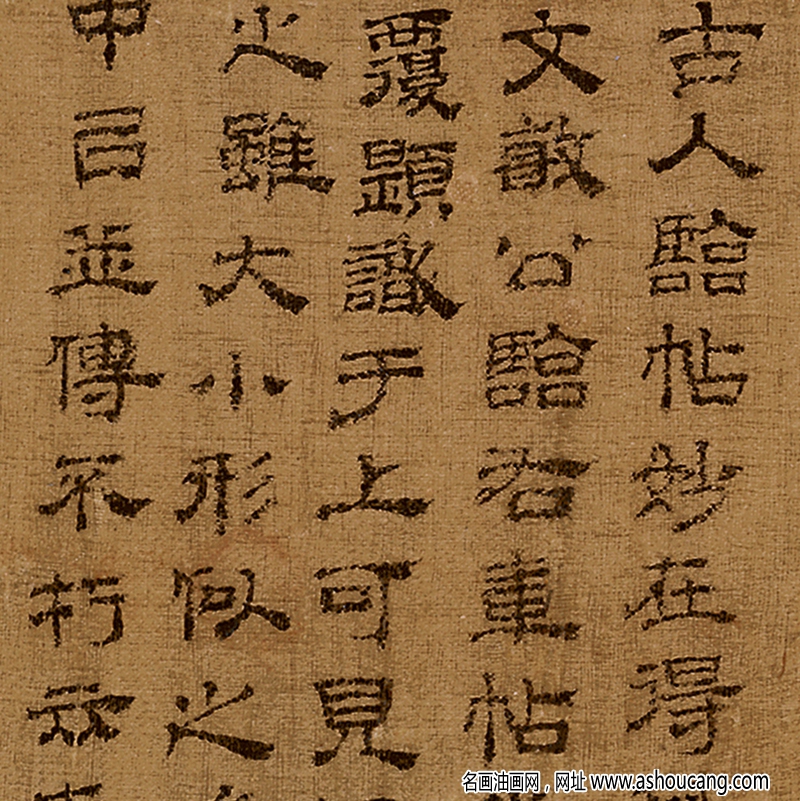 古人臨帖妙在得
文敏公臨右軍帖
覆顯識于上可見
之雖大小形似之
中已並傳不朽
名画油画网，网址 www.ashoucang.com